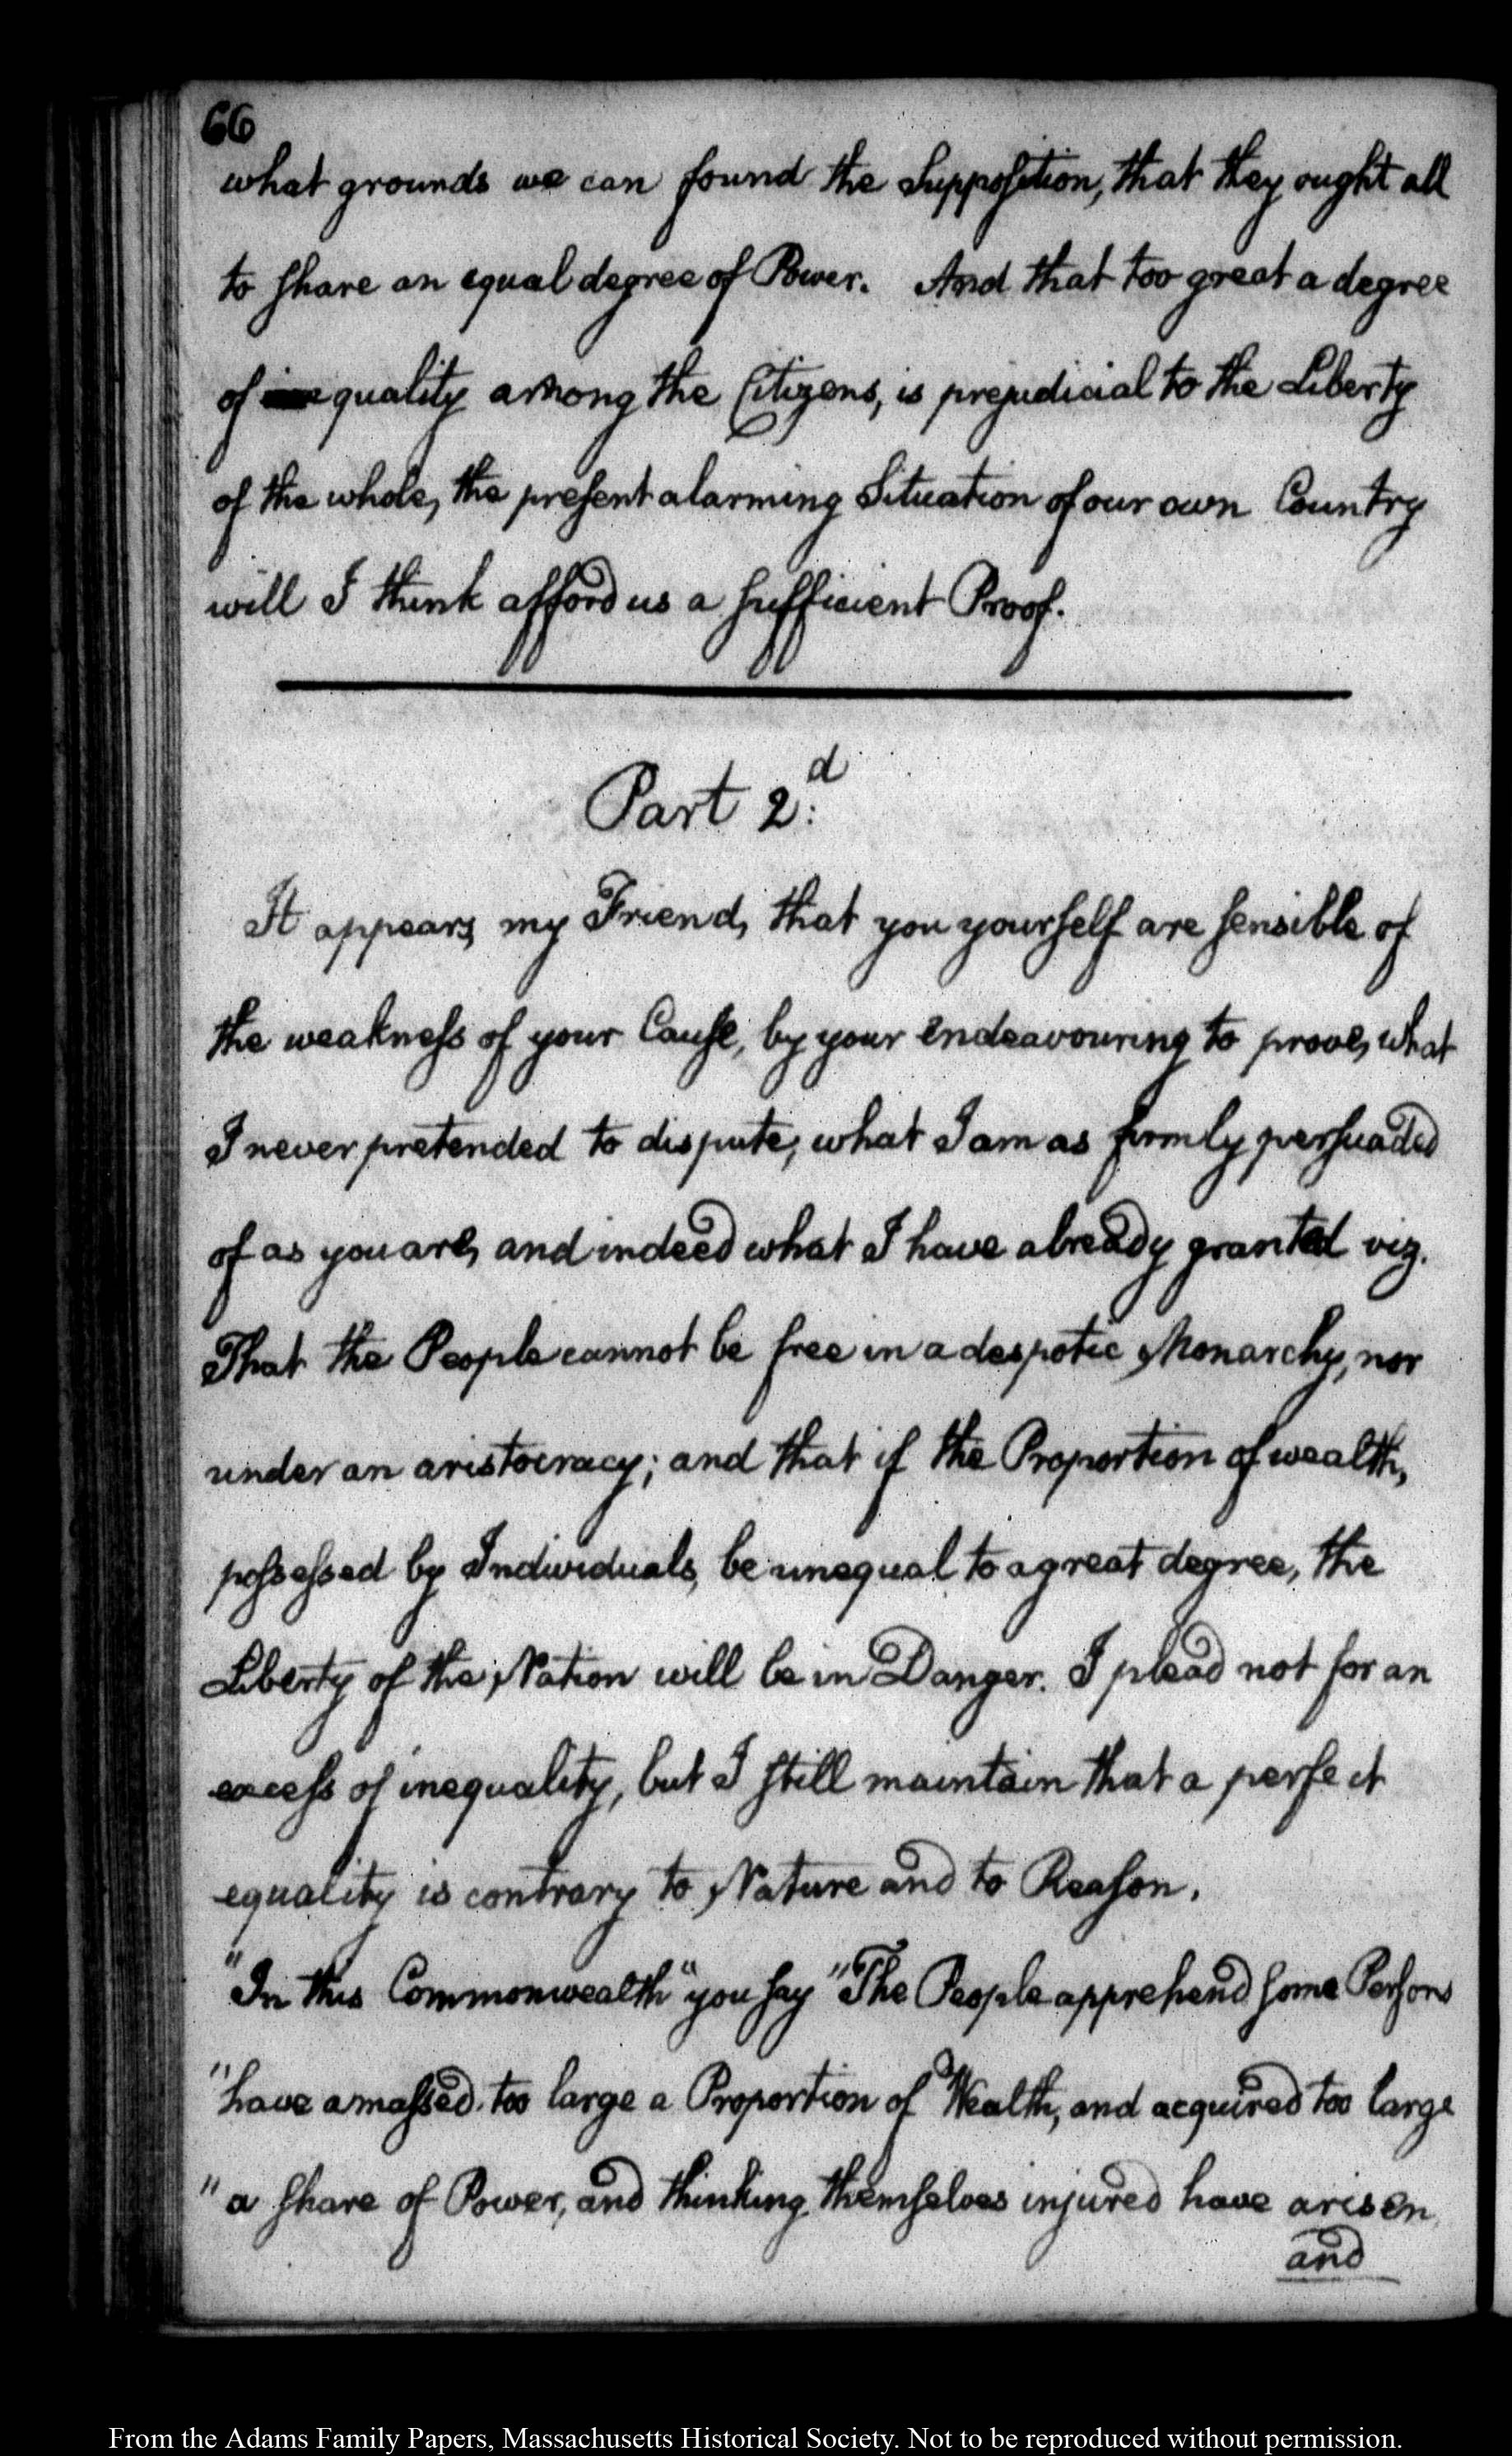 66
what grounds we can found the Supposition, that they ought all
to share an equal degree of Power. And that too great a degree
of equality among the Citizens, is prejudicial to the Liberty
of the whole, the present alarming Situation of our own Country
will I think afford us a sufficient Proof.
Part 2.d
It appears, my Friend, that you yourself are sensible of
the weakness of your Cause, by your endeavouring to prove, what
I never pretended to dispute, what I am as firmly persuaded
of as you are, and indeed what I have already granted viz.
That the People cannot be free in a despotic Monarchy, nor
under an aristocracy; and that if the Proportion of wealth,
possessed by Individuals, be unequal to a great degree, the
Liberty of the Nation will be in Danger. I plead not for an
excess of inequality, but I still maintain that a perfect
equality is contrary to Nature and to Reason.
"In this Commonwealth" you say "The People apprehend some Persons
"have amassed too large a Proportion of Wealth, and acquired too large
"a share of Power, and thinking themselves injured have arisen
and
From the Adams Family Papers, Massachusetts Historical Society. Not to be reproduced without permission.